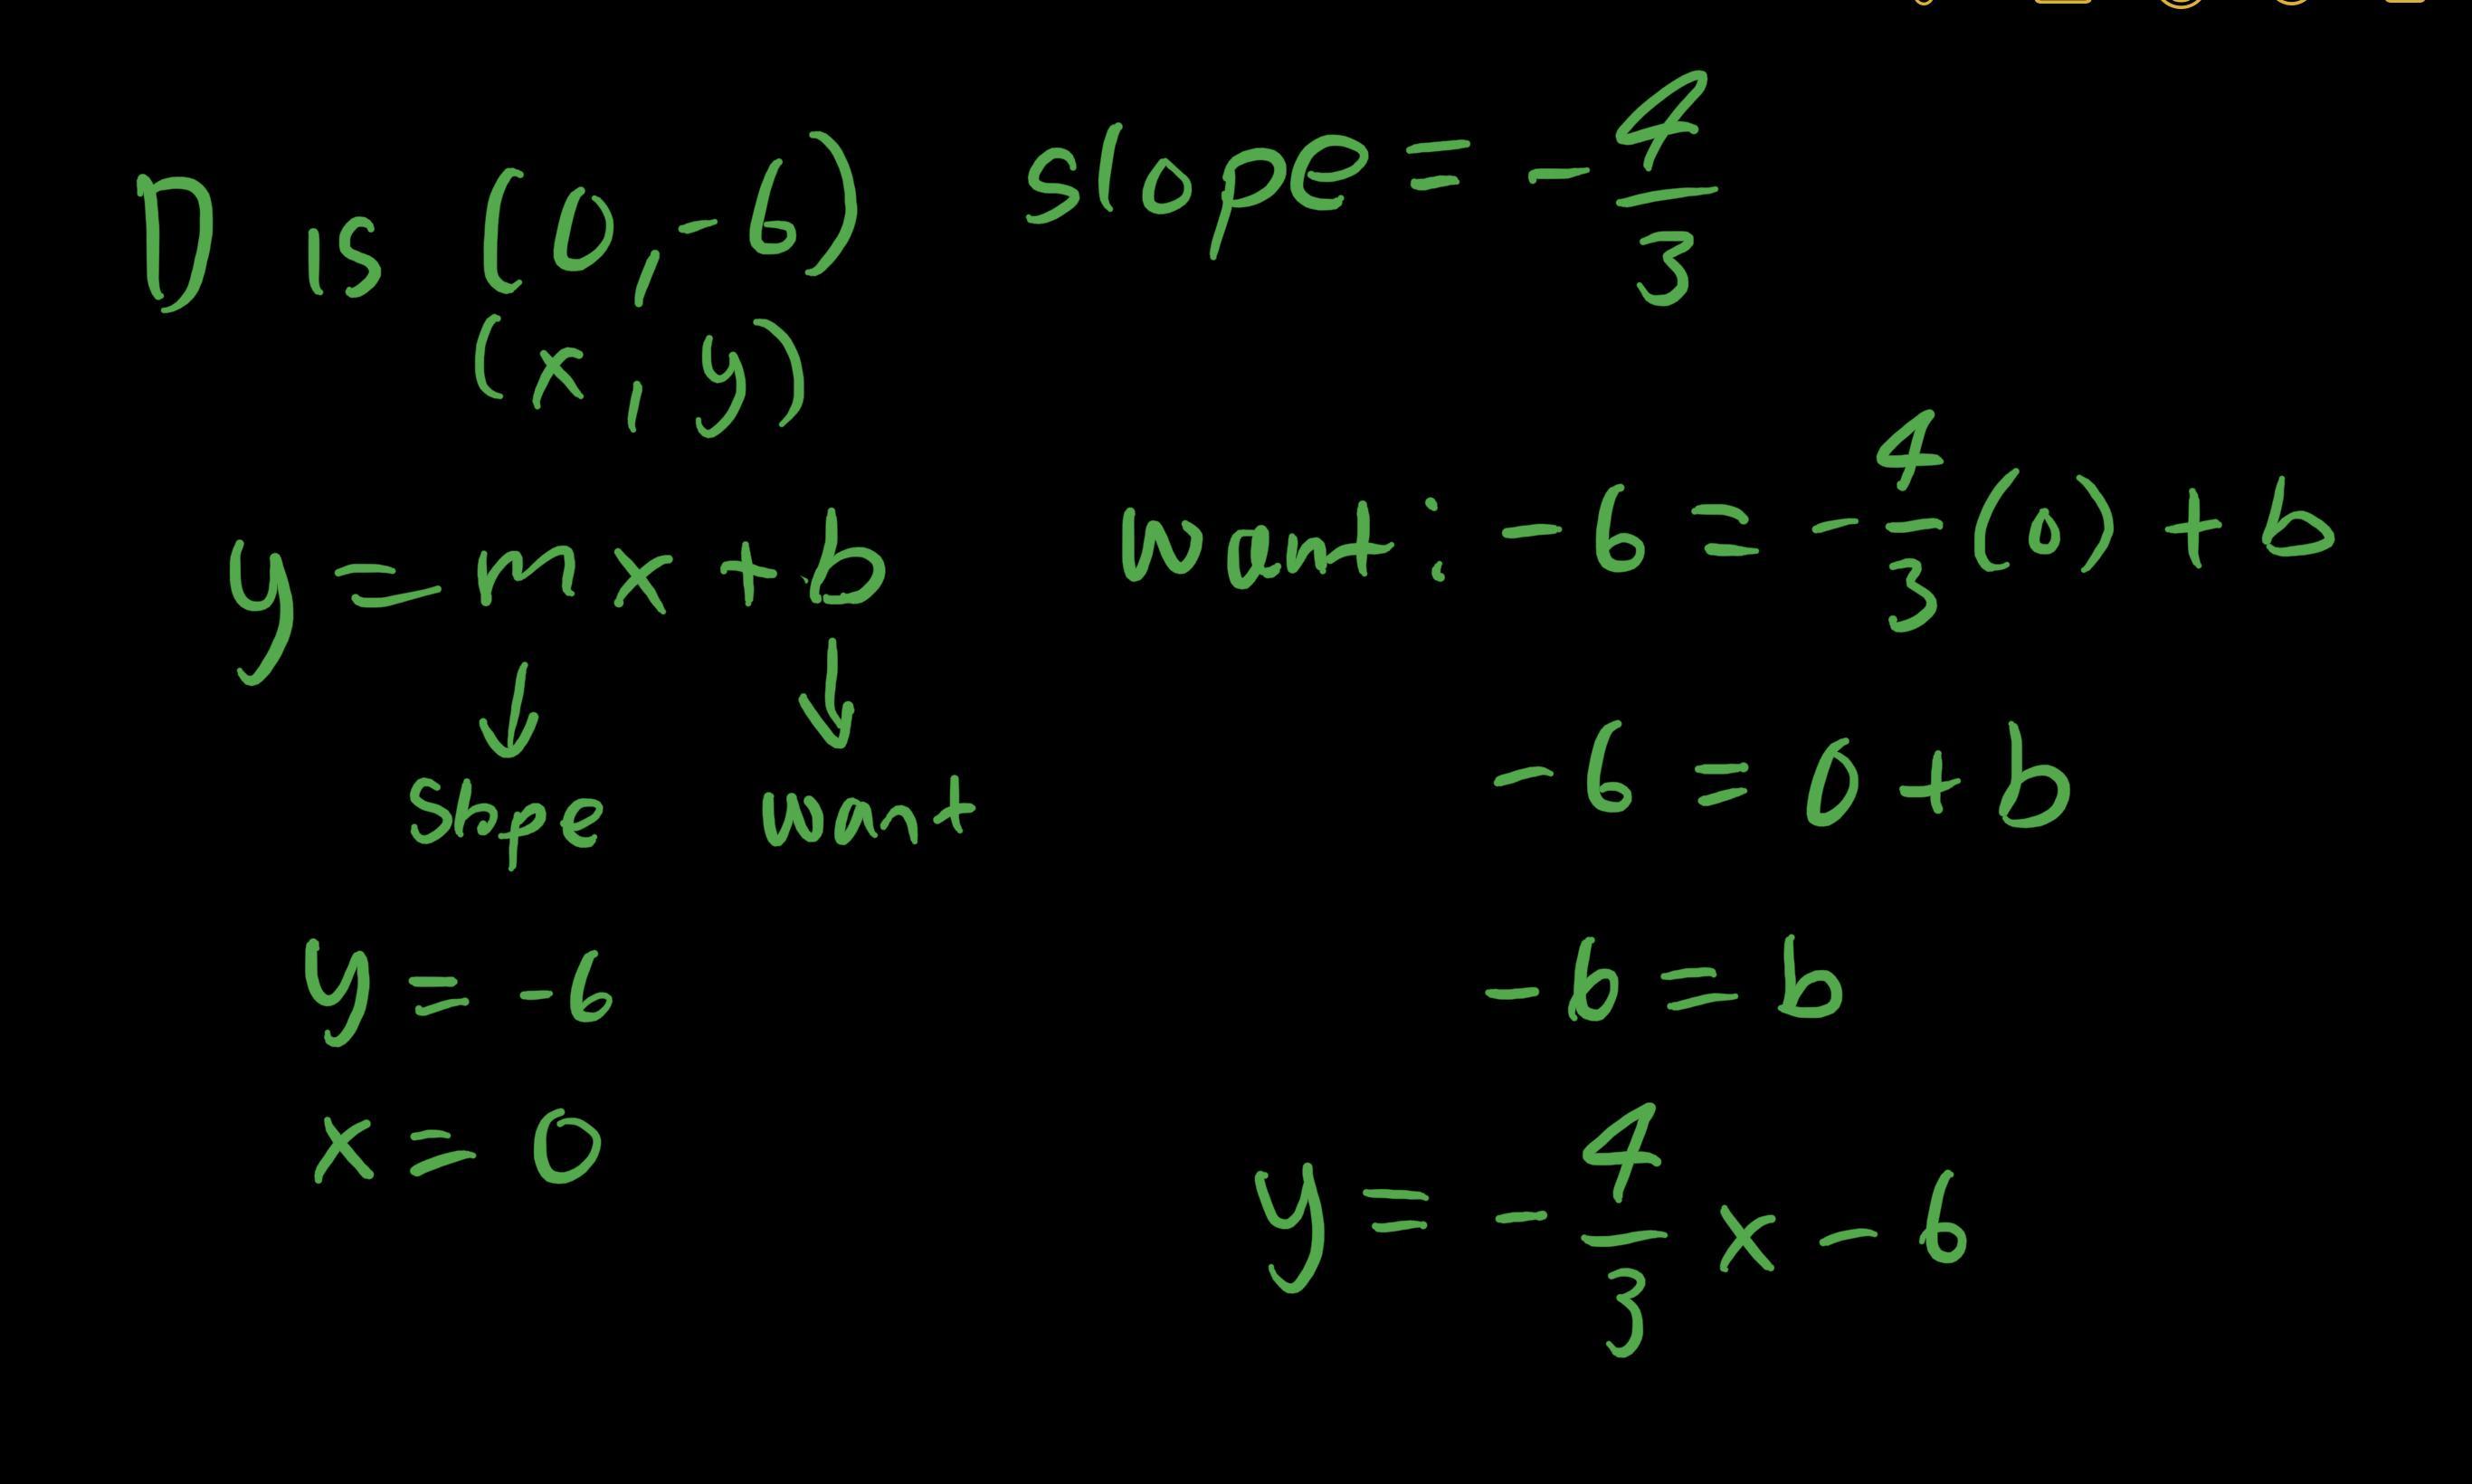 D is (0,-6) slope = -4/3
(x,y)
y = mx + b
slope want
y = -6
x = 0
want: -6 = -4/3(0) + b
-6 = 0 + b
-6 = b
y = -4/3x - 6